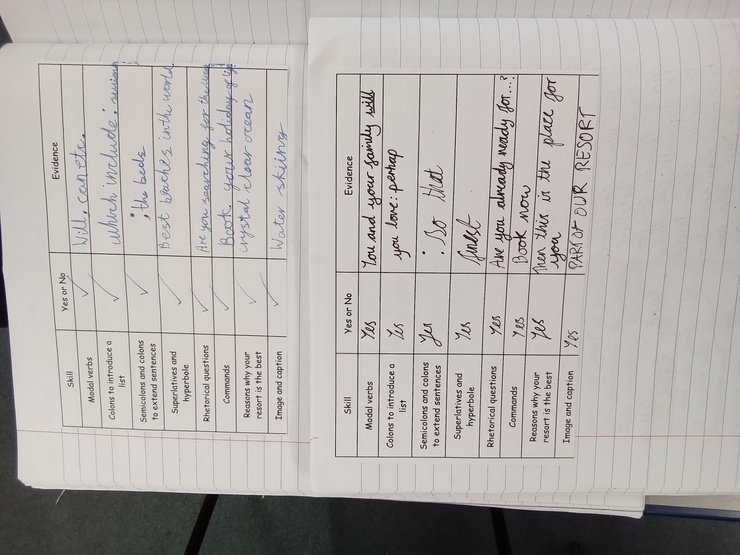 Skill Yes or No Evidence
Modal verbs ✓ Will, can etc.
Colons to introduce a ✓ which include:
list
Semicolons and colons ✓ ; the beds
to extend sentences
Superlatives and ✓ Best beaches in the world
hyperbole
Rhetorical questions ✓ Are you searching for the
Commands ✓ Book your holiday of
Reasons why your ✓ crystal clear ocean
resort is the best
Image and caption ✓ Water skiing
Skill Yes or No Evidence
Modal verbs Yes You and your family will
Colons to introduce a Yes you love: perhap
list
Semicolons and colons Yes : So that
to extend sentences
Superlatives and Yes finest
hyperbole
Rhetorical questions Yes Are you already ready for....?
Commands Yes Book now
Reasons why your Yes Then this is the place for
resort is the best you
Image and caption Yes PART OF OUR RESORT